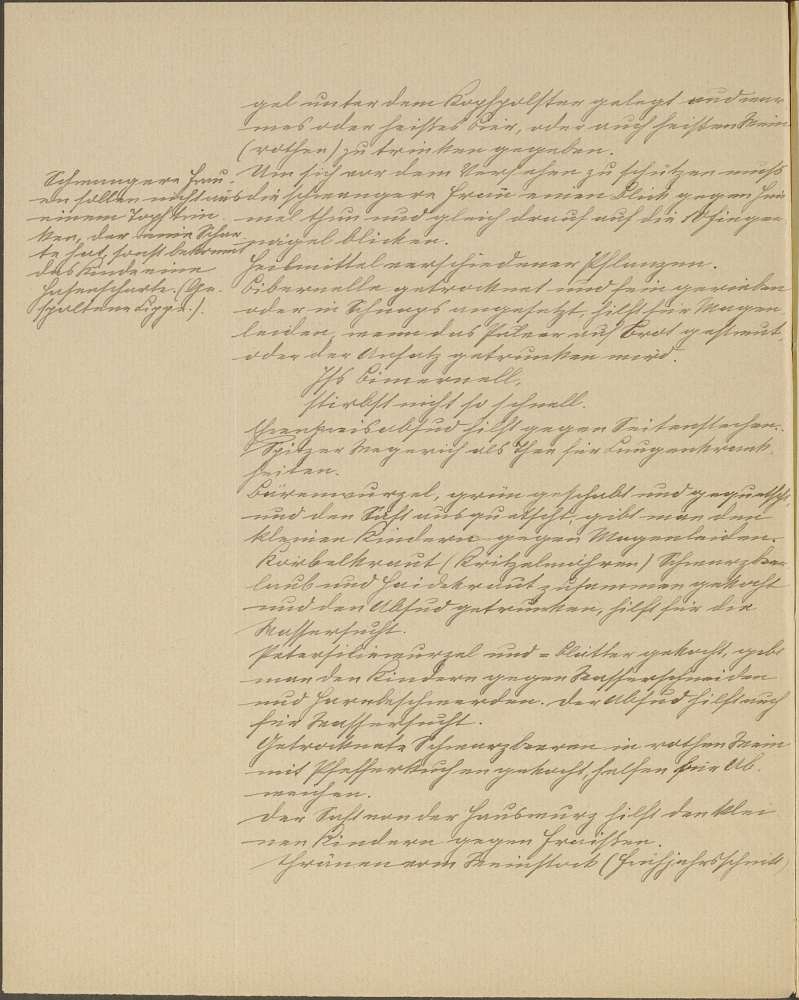 gel unter dem Kopfpolster gelegt und war-
mes oder heißes Bier, oder auch heißen Wein
(rothen) zu trinken gegeben.
Um sich vor dem Versehen zu schützen muß
die schwangere Frau einen Blick gegen Him
mel thun und gleich drauf auf die 10 Finger
nägel blicken.
Schwangere Frau-
en sollen nicht aus
einem Topf trin
ken, der eine Schar
te hat, sonst bekommt
das Kinde eine
Hasenscharte. (Ge-
spaltene Lippe.).
Heilmittel verschiedener Pflanzen.
Bibernelle getrocknet und fein gerieben
oder in Schnaps angesetzt, hilft für Magen
leiden, wenn das Pulver auf Brot gestreut,
oder der Ansatz getrunken wird.
Iß Bimernell,
stirbst nicht so schnell.
Ehrenpreisabsud hilft gegen Seitenstechen.
Spitzer Wegerich als Thee für Lungenkrank
heiten.
Bärenwurzel, grün geschabt und gequetscht,
und den Saft ausquetscht, gibt man den
kleinen Kindern gegen Magenleiden.
Körbelkraut (Kritzelmöhren) Schwarzbeer
laub und Haidekraut zusammen gekocht
und den Absud getrunken, hilft für die
Wassersucht.
Petersilienwurzel und = blätter gekocht, gibt
man den Kindern gegen Wasserschneiden
und Harnbeschwerden. Der Absud hilft auch
für Wassersucht.
Getrocknete Schwarzbeeren in rothen Wein
mit Pfefferkuchen gekocht, helfen für Ab
weichen.
Der Saft von der Hauswurz hilft den klei
nen Kindern gegen Fraißen.
Thränen vom Weinstock (Frühjahrsschnitt)